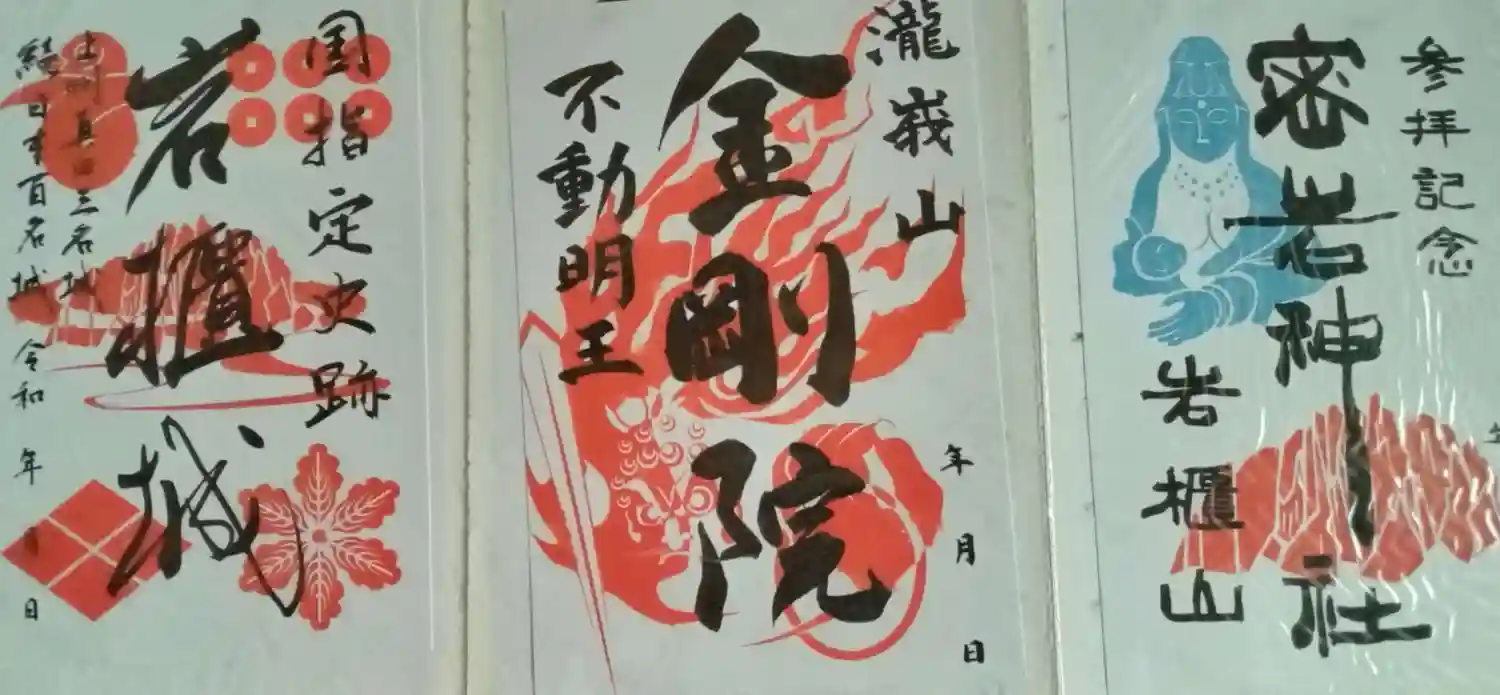 国指定史跡
岩櫃城
上州真田三名城
続日本百名城 令和 年 月 日
瀧峩山
金剛院
不動明王
年 月 日
参拝記念
密岩神社
岩櫃山